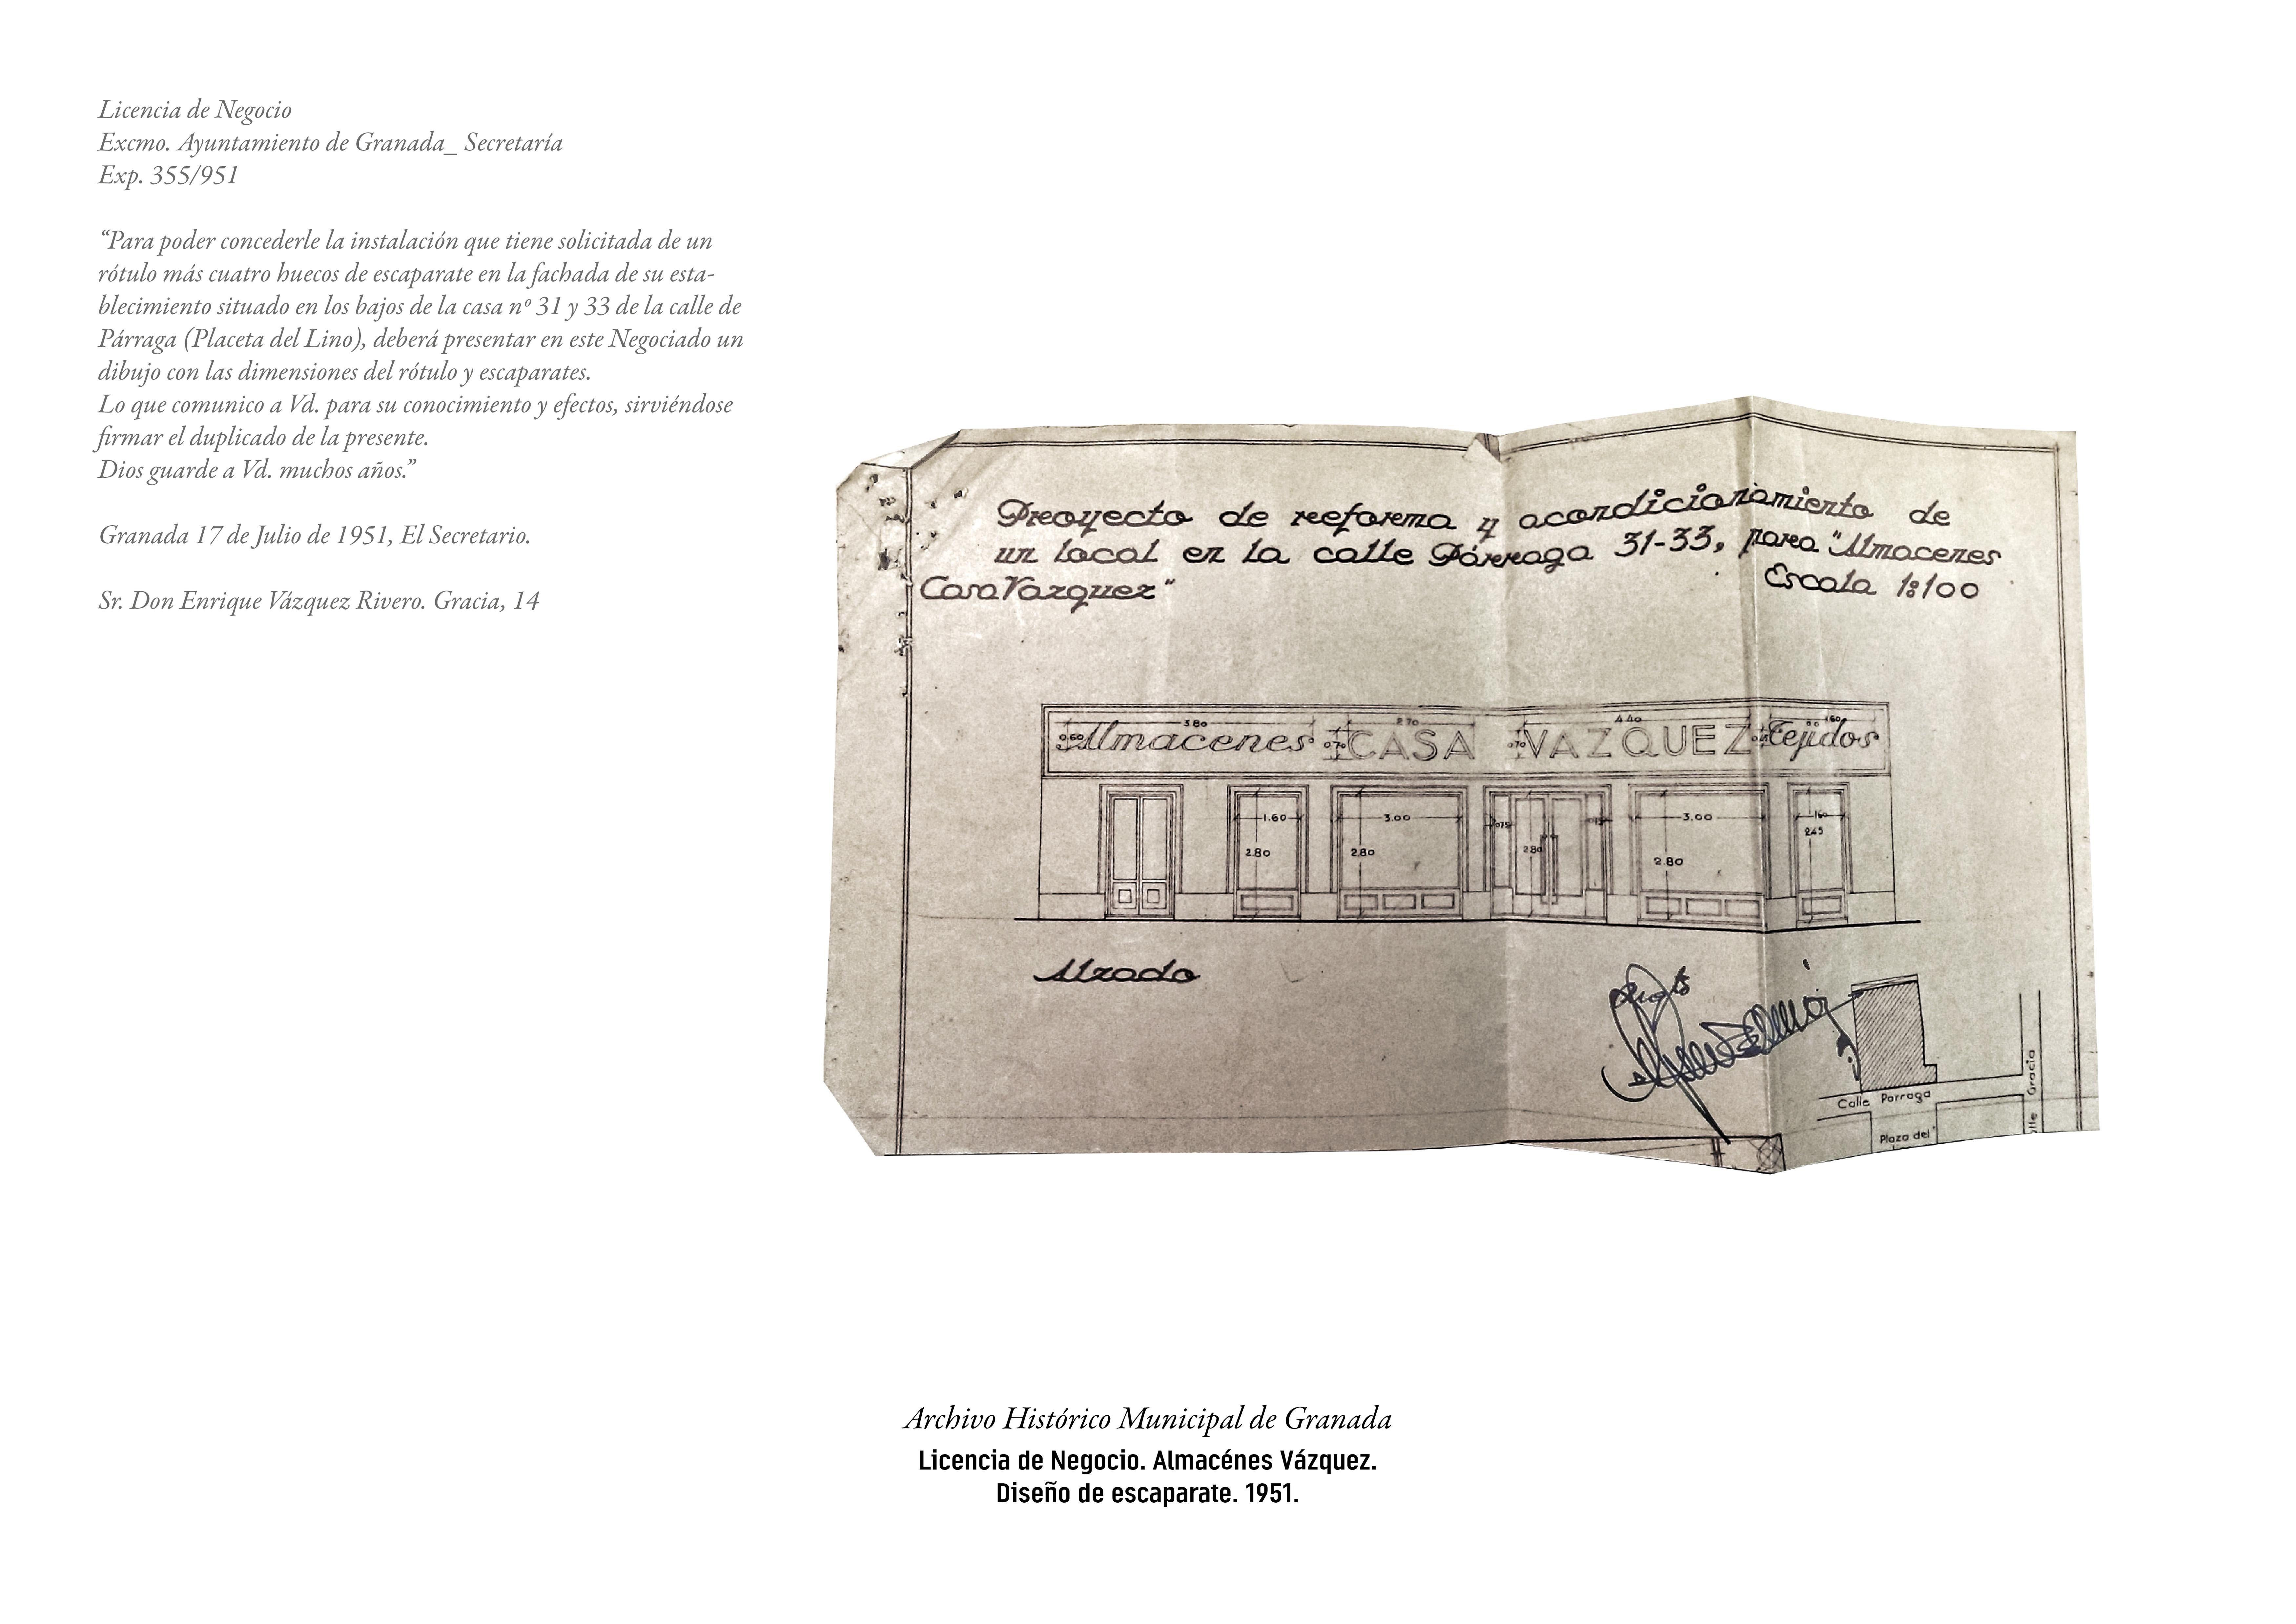 Licencia de Negocio
Excmo. Ayuntamiento de Granada_ Secretaría
Exp. 355/951
“Para poder concederle la instalación que tiene solicitada de un
rótulo más cuatro huecos de escaparate en la fachada de su esta-
blecimiento situado en los bajos de la casa nº 31 y 33 de la calle de
Párraga (Placeta del Lino), deberá presentar en este Negociado un
dibujo con las dimensiones del rótulo y escaparates.
Lo que comunico a Vd. para su conocimiento y efectos, sirviéndose
firmar el duplicado de la presente.
Dios guarde a Vd. muchos años.”
Granada 17 de Julio de 1951, El Secretario.
Sr. Don Enrique Vázquez Rivero. Gracia, 14
Proyecto de reforma y acondicionamiento de
un local en la calle Párraga 31-33, para "Almacenes
Casa Vazquez"
Escala 1:100
3.80 2.70 4.40 1.60
0.60 Almacenes 0.70 CASA 0.70 VAZQUEZ Tejidos
1.60 3.00 0.75 3.00 1.60
2.80 2.80 2.80 2.80 2.45
Alzado
Calle Parraga
Plaza del
Gracia
Archivo Histórico Municipal de Granada
Licencia de Negocio. Almacénes Vázquez.
Diseño de escaparate. 1951.